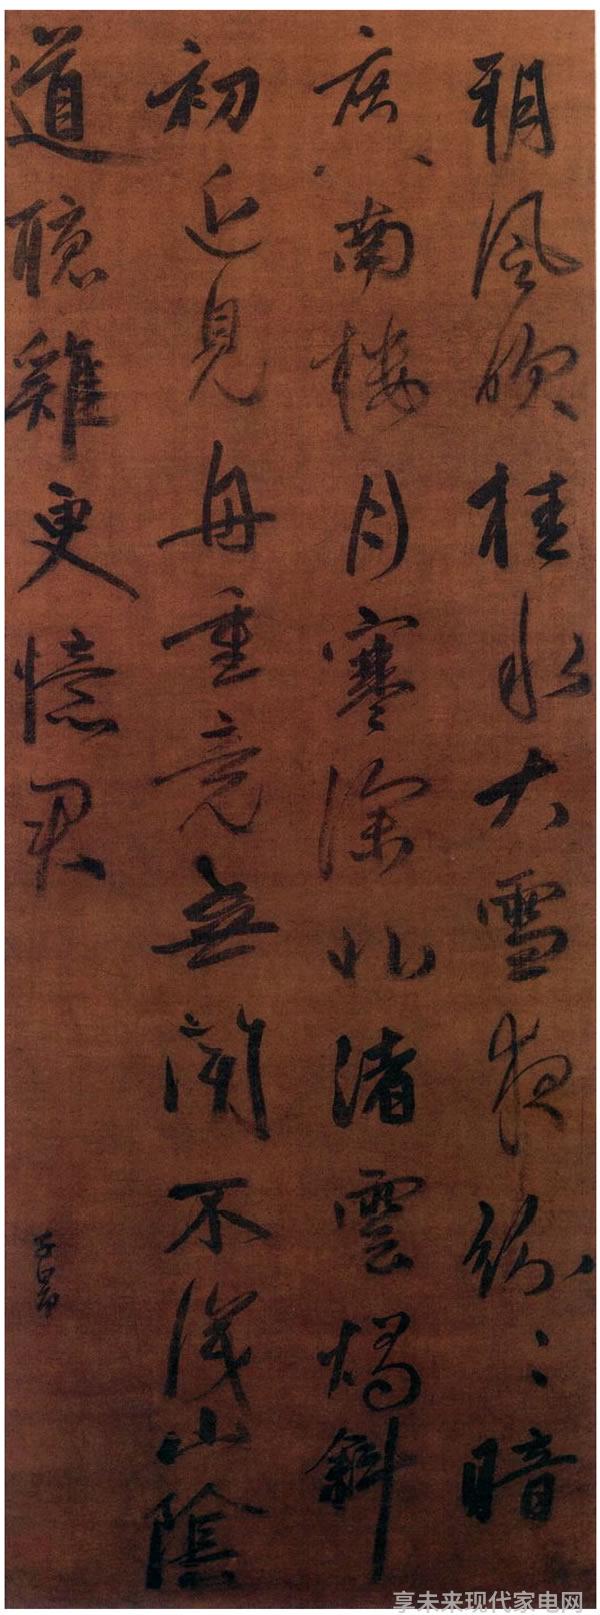 朔風吹桂水大雪夜紛〻暗
度南樓月寒深北渚雲燭斜
初近見舟重竟無聞不識山陰
道聽雞更憶君
子昂
享未来现代家电网